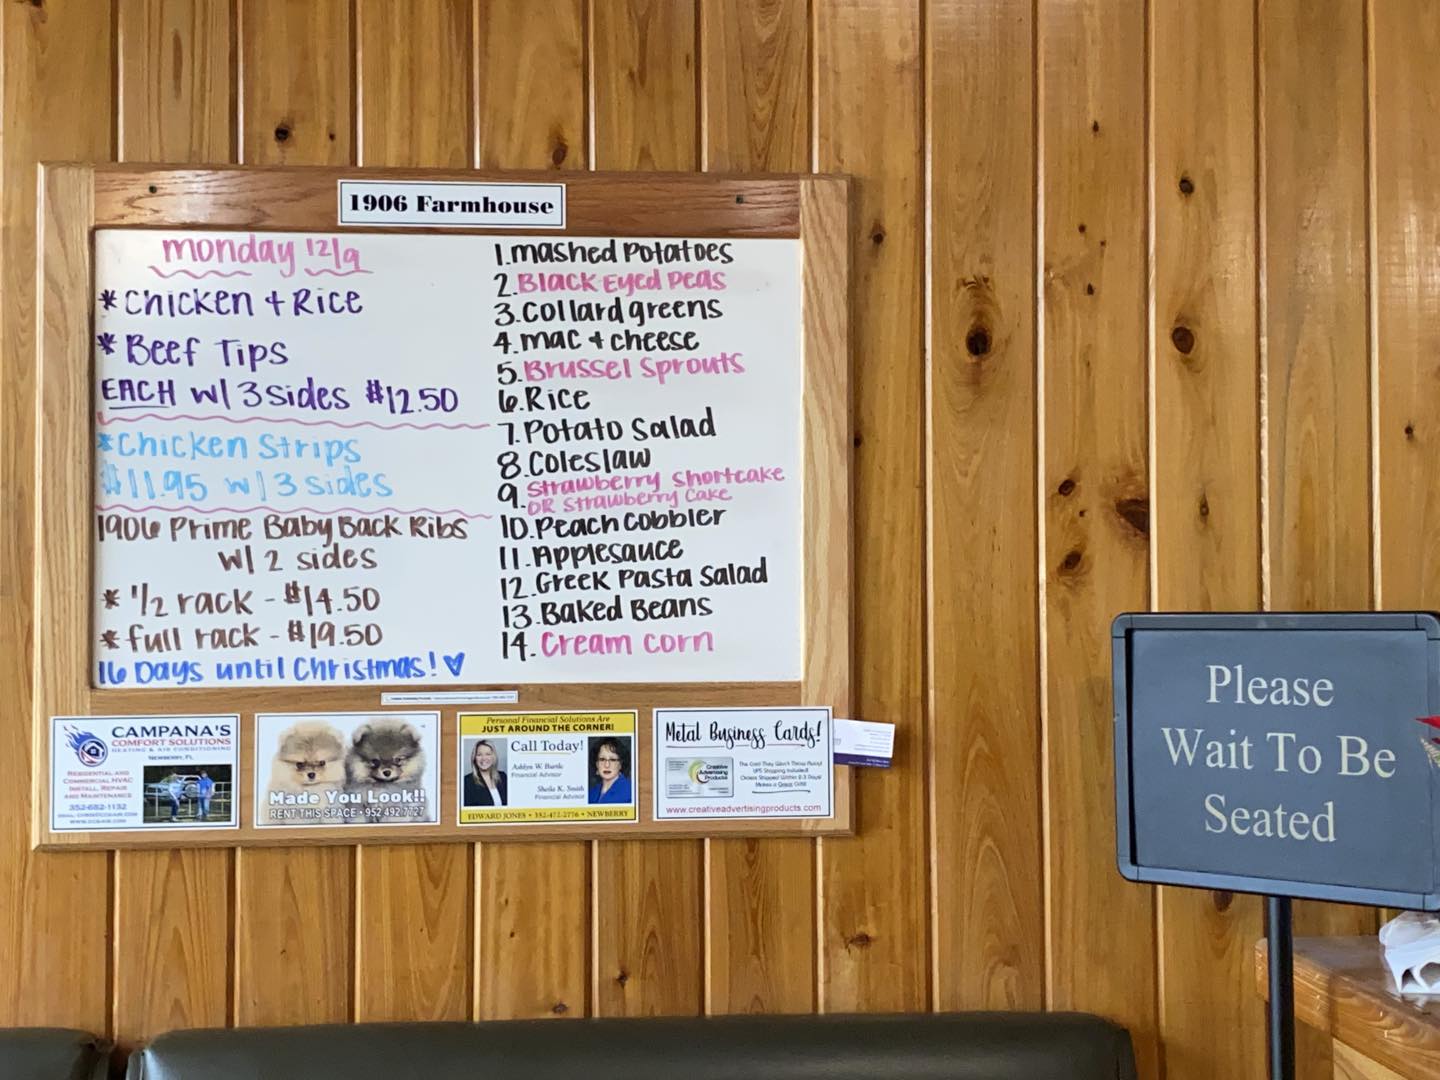 1906 Farmhouse
monday 12/9
*Chicken + Rice
*Beef Tips
EACH w/ 3 sides $12.50
*Chicken Strips
$11.95 w/ 3 sides
1906 Prime Baby Back Ribs
w/ 2 sides
* 1/2 rack - $14.50
* full rack - $19.50
16 Days until Christmas! ♡
1. mashed Potatoes
2. Black Eyed Peas
3. collard greens
4. mac + cheese
5. Brussel Sprouts
6. Rice
7. Potato Salad
8. Coleslaw
9. Strawberry Shortcake
OR Strawberry Cake
10. Peach Cobbler
11. Applesauce
12. Greek Pasta Salad
13. Baked Beans
14. Cream corn
CAMPANA'S
COMFORT SOLUTIONS
HEATING & AIR CONDITIONING
NEWBERRY, FL
RESIDENTIAL AND
COMMERCIAL HVAC
INSTALL, REPAIR
AND MAINTENANCE
352-682-1132
Made You Look!!
RENT THIS SPACE • 952 492 7727
Personal Financial Solutions Are
JUST AROUND THE CORNER!
Call Today!
Ashlyn W. Burtle
Financial Advisor
Sheila K. Smith
Financial Advisor
EDWARD JONES • 352-472-2776 • NEWBERRY
Metal Business Cards!
Creative
Advertising
Products
The Card They Won't Throw Away!
UPS Shipping Included!
Orders Shipped Within 2-3 Days!
Makes a Great Gift!
www.creativeadvertisingproducts.com
Please
Wait To Be
Seated